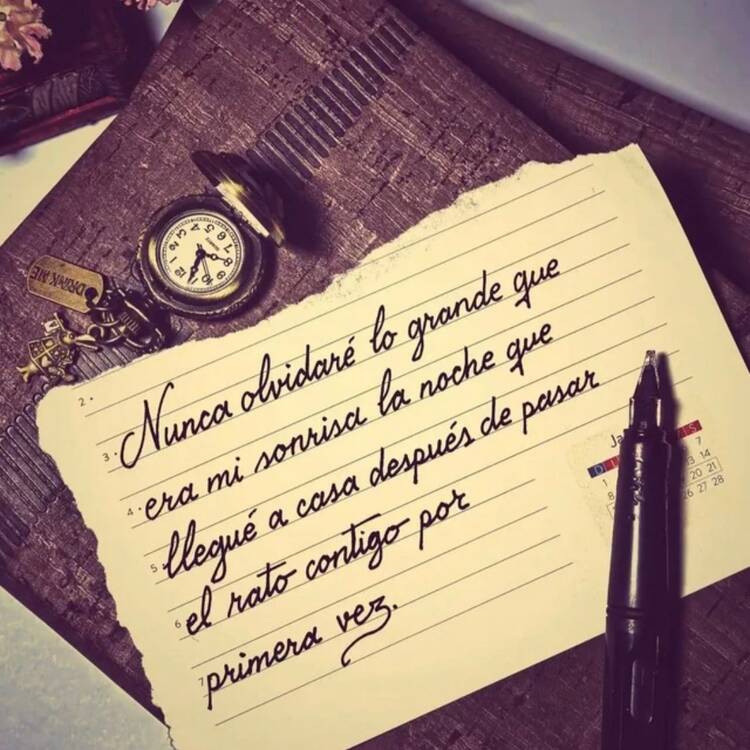 DRINK ME
12
2
3
4
5
QUARTZ
2.
3. Nunca olvidaré lo grande que
4. era mi sonrisa la noche que
5 llegué a casa después de pasar
6 el rato contigo por
7 primera vez.
Ja
D S
1 7
8 13 14
20 21
26 27 28